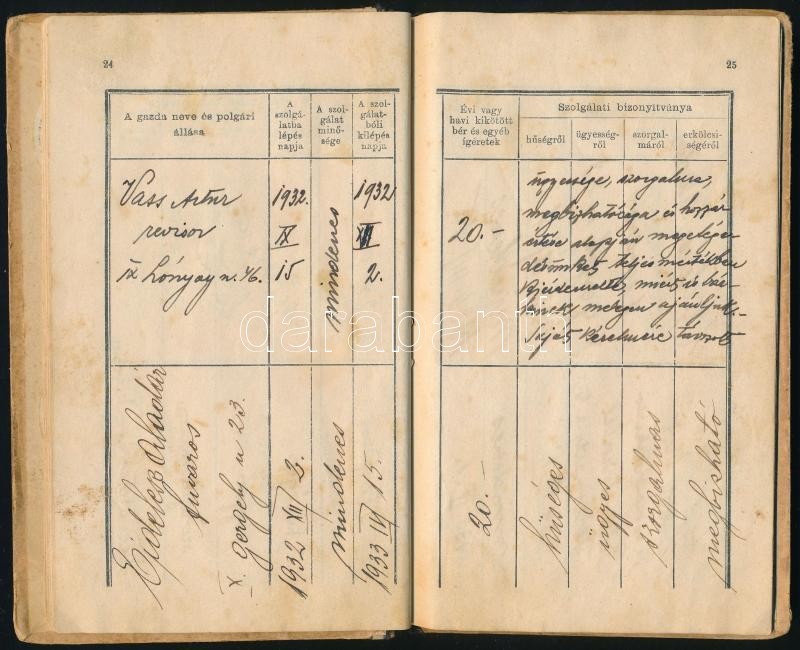 24
A gazda neve és polgári állása
A szolgálatba lépés napja
A szolgálat minősége
A szolgálatbóli kilépés napja
Vass Artur
revisor
IX Lónyay u. 46.
1932.
IX
15
mindenes
1932
XII
2.
Aladár
fuvaros
X. Gergely u 23.
1932 XII 2.
mindenes
1933 III 15.
25
Évi vagy havi kikötött bér és egyéb ígéretek
Szolgálati bizonyitványa
hűségről
ügyességről
szorgalmáról
erkölcsiségéről
20.-
ügyessége, szorgalma,
megbizhatósága és hozzá
értése alapján megelége
désünket teljes mértékben
kiérdemelte, miért is bár
kinek melegen ajánljuk.
Saját kérelmére távozott
20.-
hűséges
ügyes
szorgalmas
megbizható
darabanth